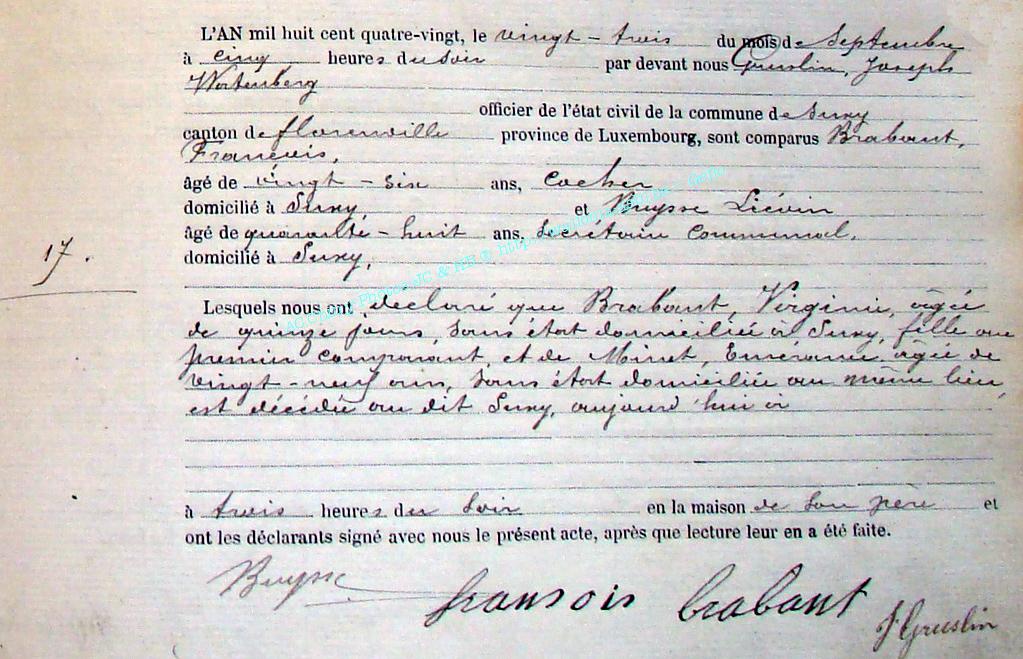 L'AN mil huit cent quatre-vingt, le vingt-trois du mois de Septembre
à cinq heures du soir par devant nous Gruslin, Joseph
officier de l'état civil de la commune de Suxy
canton de florenville province de Luxembourg, sont comparus Brabant,
François,
âgé de vingt-six ans, cocher
domicilié à Suxy et Buysse Liévin
âgé de quarante-huit ans, Secrétaire communal,
17. domicilié à Suxy,
Lesquels nous ont déclaré que Brabant, Virginie, âgée
de quinze jours, sans état domiciliée à Suxy, fille au
premier comparant, et de Minet, Emérance âgée de
vingt-neuf ans, sans état domiciliée au même lieu,
est décédée au dit Suxy, aujourd'hui à
à trois heures du soir en la maison de son père et
ont les déclarants signé avec nous le présent acte, après que lecture leur en a été faite.
Buysse
fransois brabant
J Gruslin